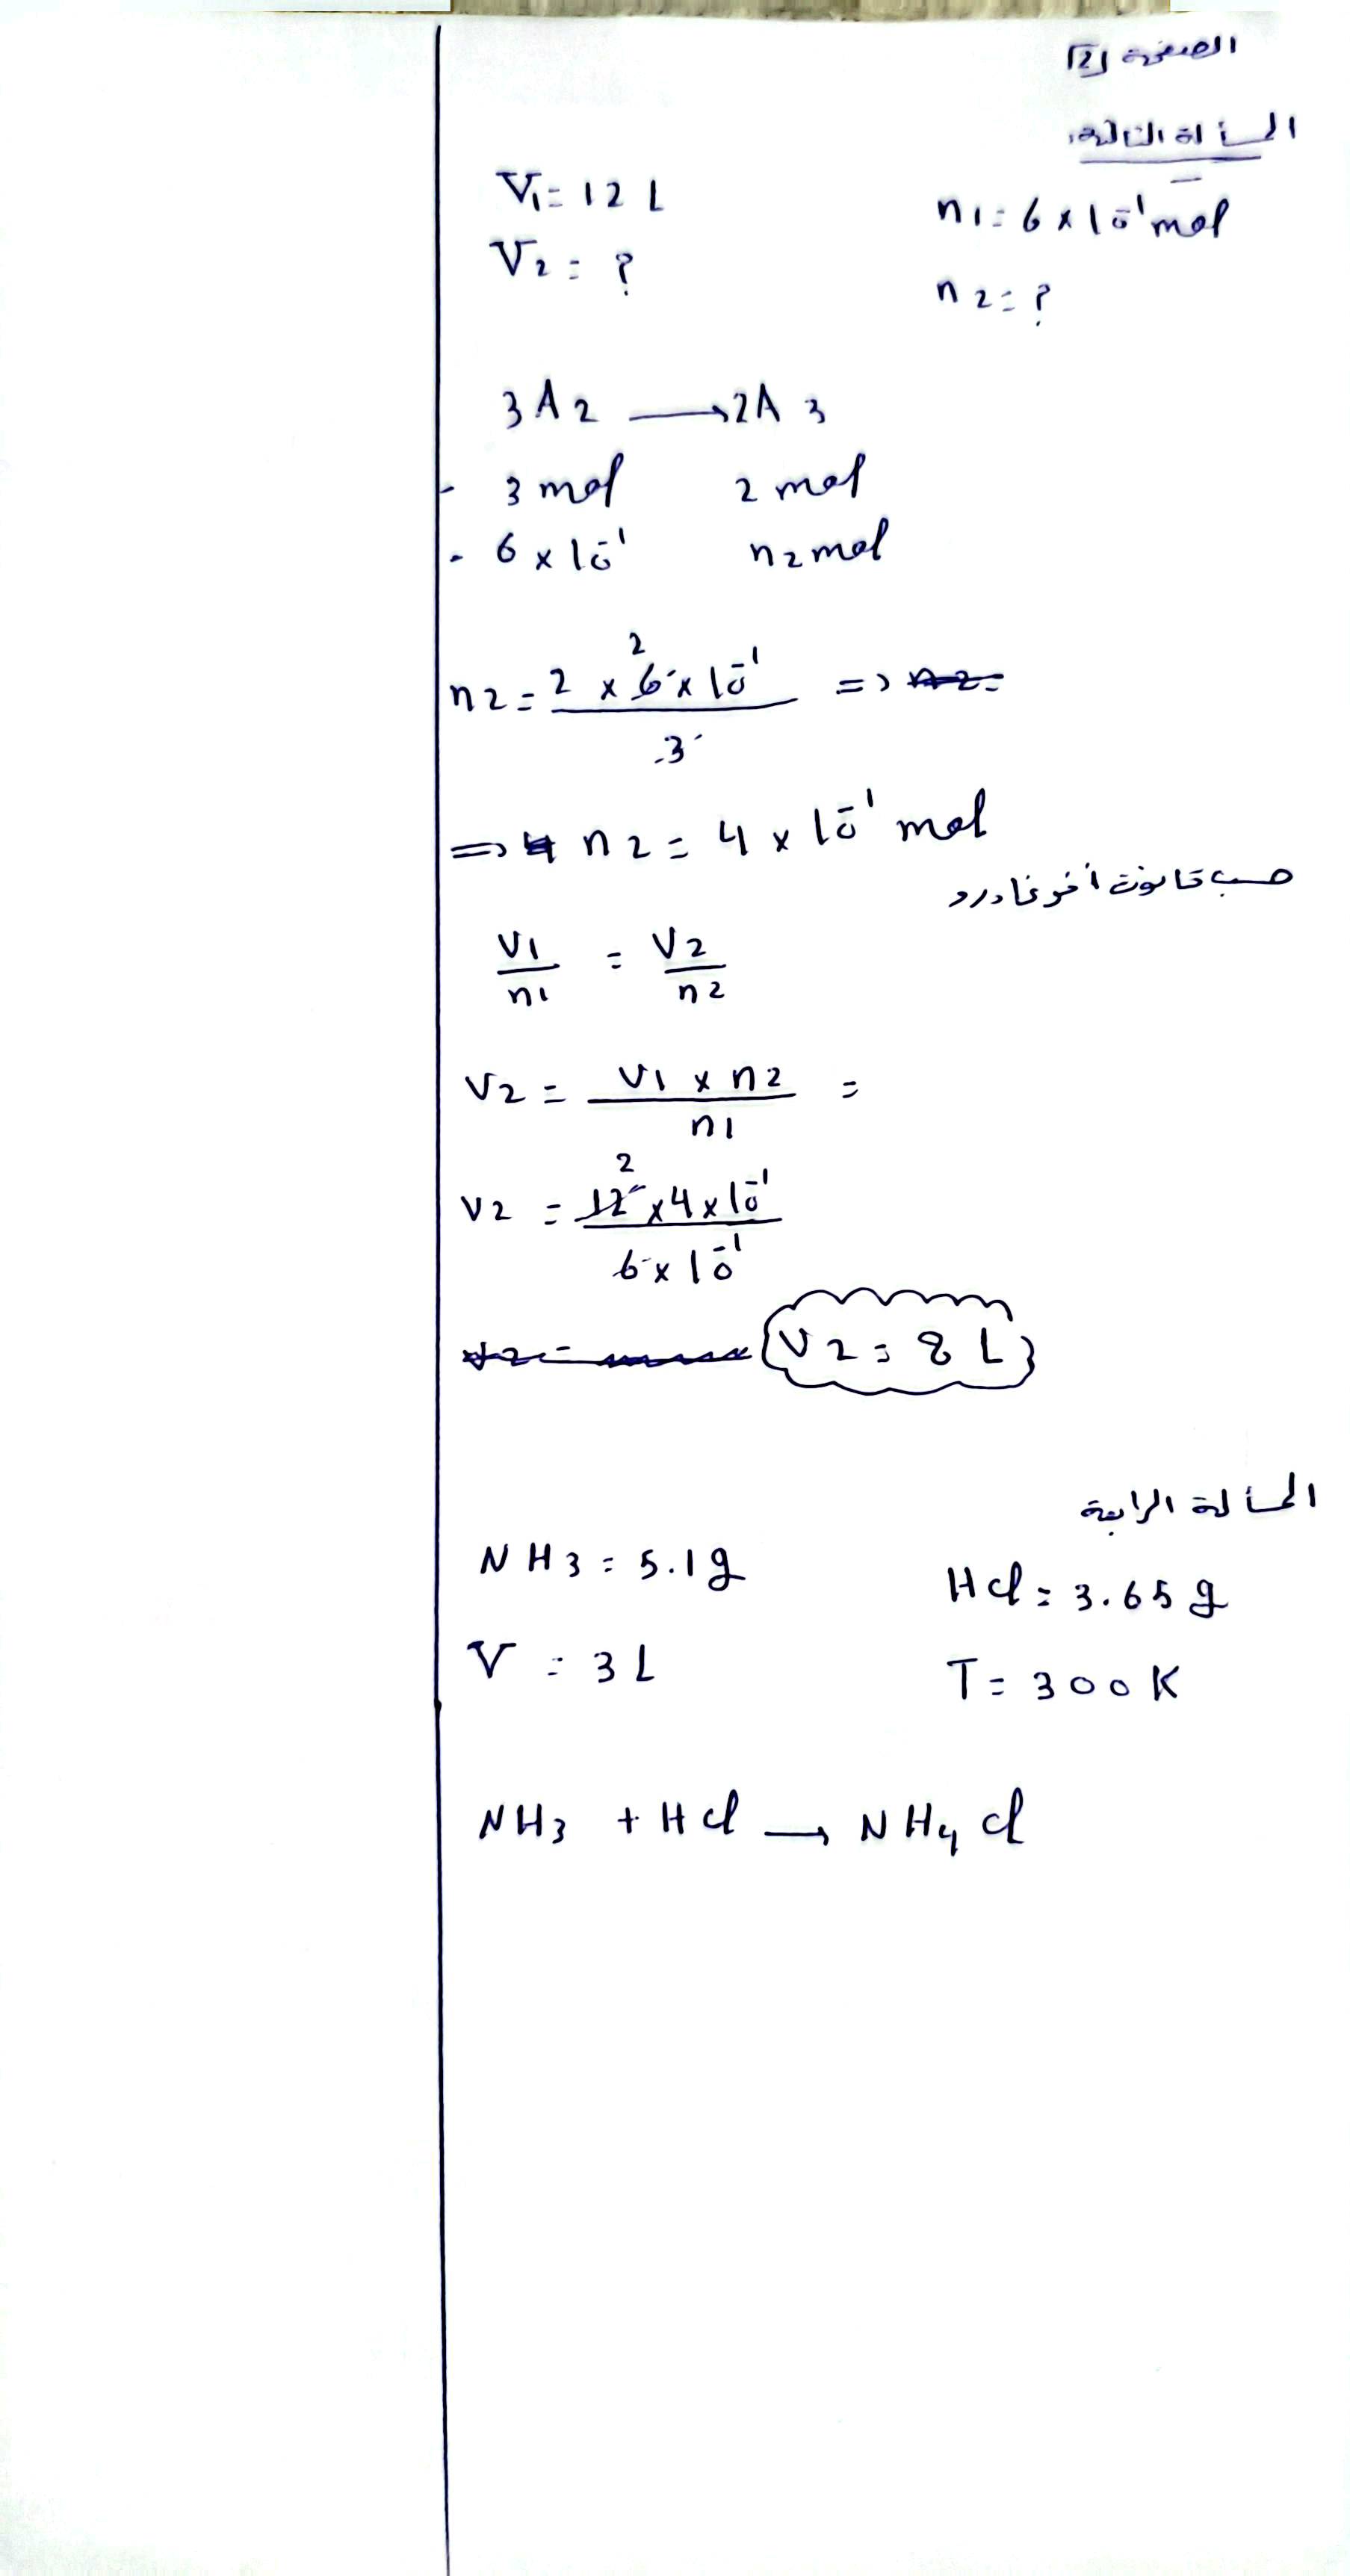 الصفحة [2]
المسألة الثالثة:
V1 = 12 L n1 = 6 x 10^-1 mol
V2 = ? n2 = ?
3A2 → 2A3
- 3 mol 2 mol
- 6 x 10^-1 n2 mol
n2 = 2 x 6 x 10^-1 / 3 =>
2
=> n2 = 4 x 10^-1 mol
حسب قانون أفوغادرو
V1/n1 = V2/n2
V2 = V1 x n2 / n1 =
V2 = 12 x 4 x 10^-1 / 6 x 10^-1
2
V2 = 8 L
المسألة الرابعة
NH3 = 5.1 g HCl = 3.65 g
V = 3 L T = 300 K
NH3 + HCl → NH4Cl